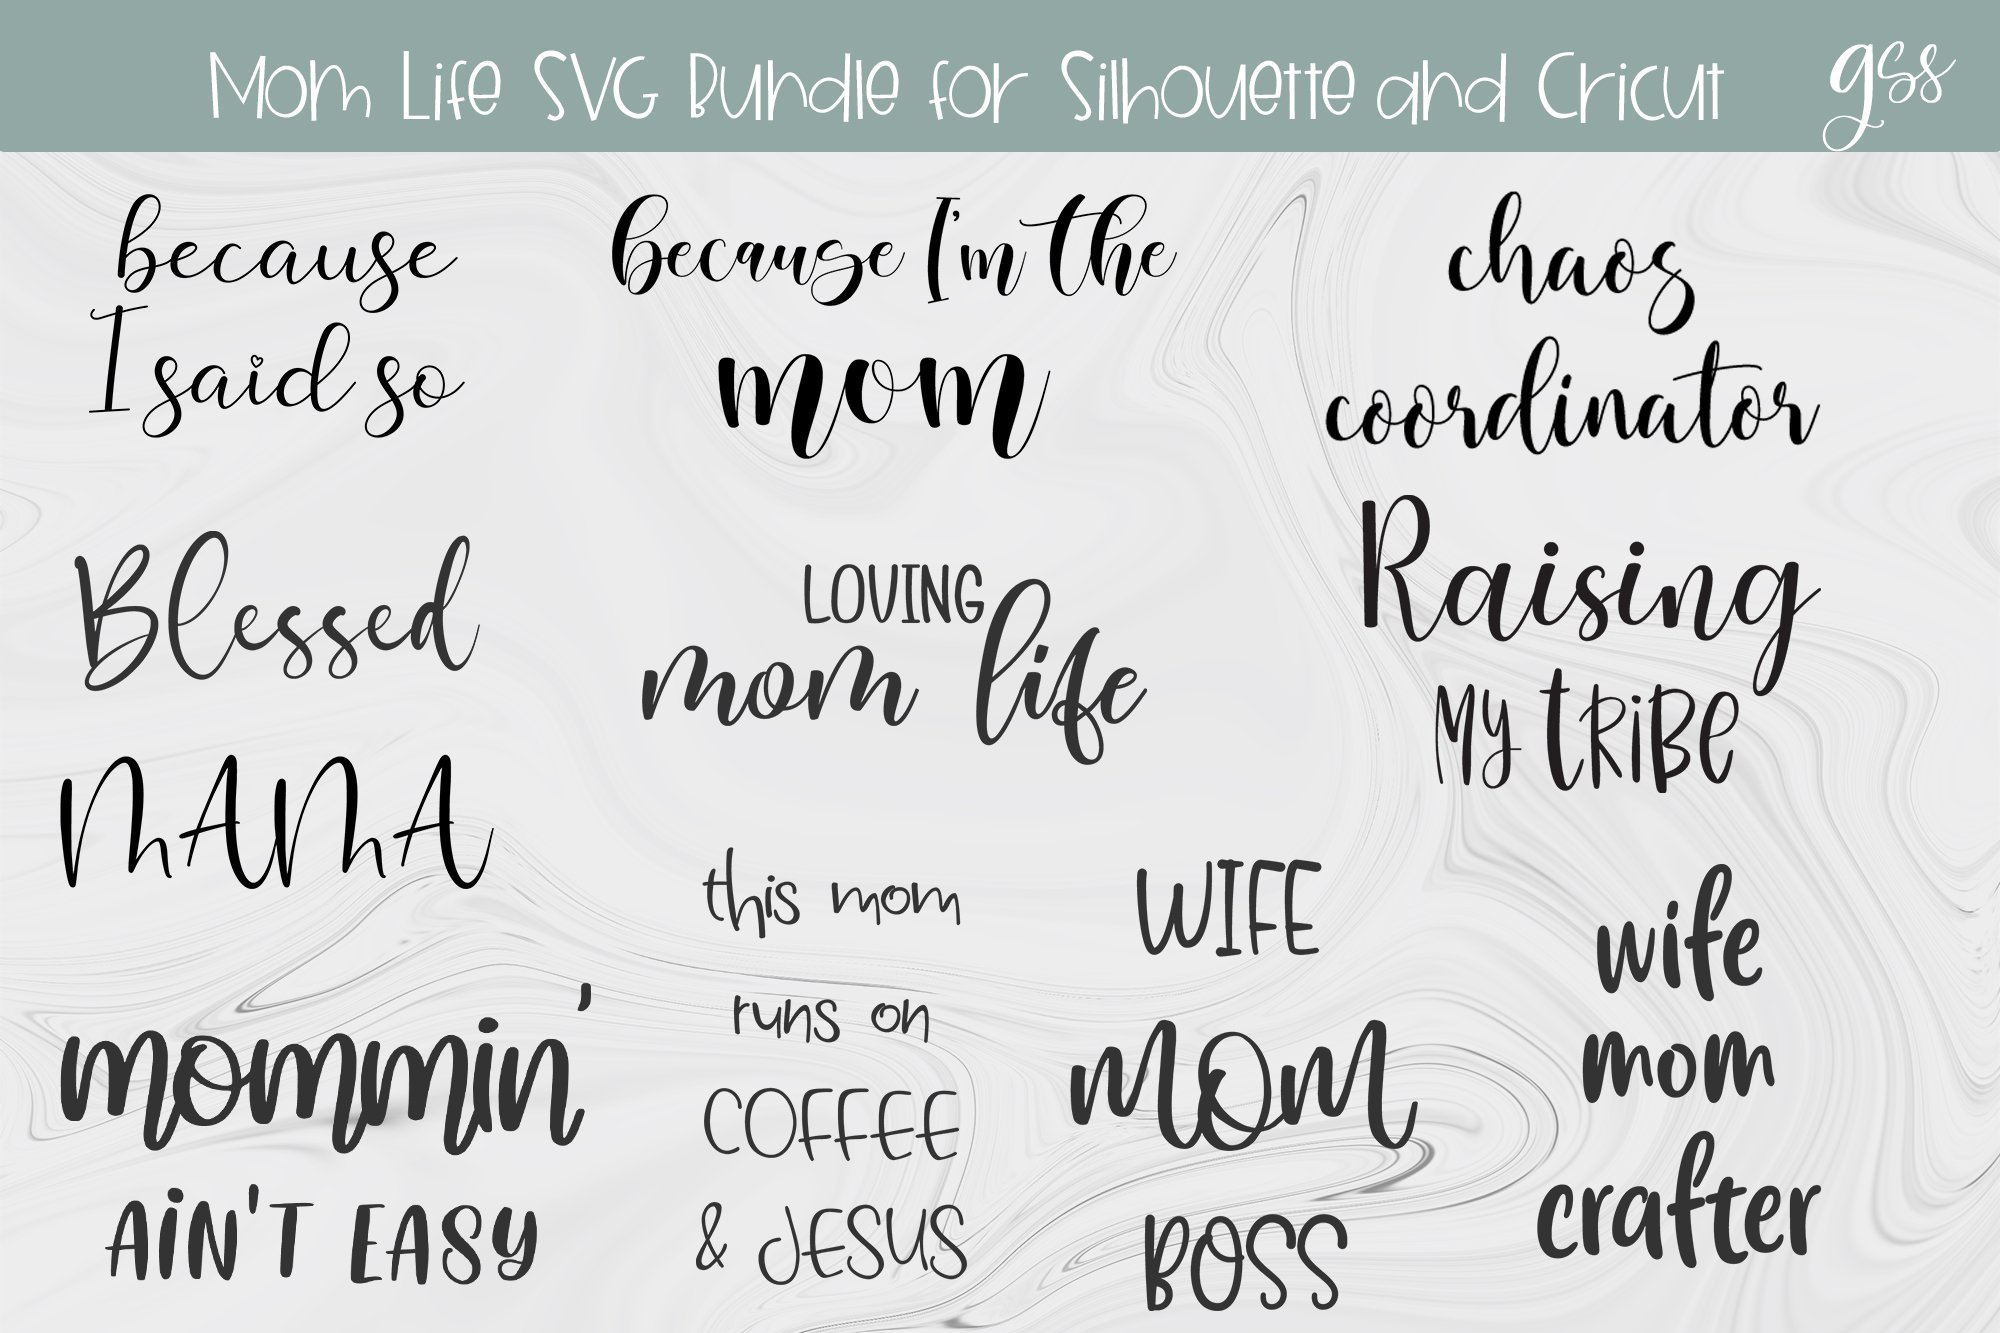 Mom Life SVG Bundle for Silhouette and Cricut
gss
because
I said so
because I'm the
mom
chaos
coordinator
Blessed
MAMA
LOVING
mom life
Raising
MY TRIBE
mommin'
AIN'T EASY
this mom
runs on
COFFEE
& JESUS
WIFE
MOM
BOSS
wife
mom
crafter